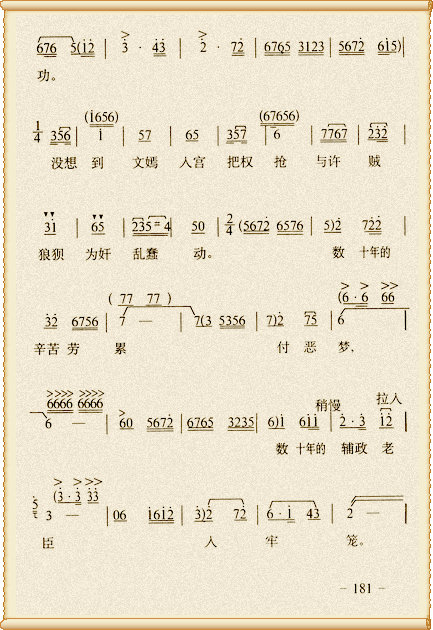 676 5(i2 | 3 · 43 | 2 · 72 | 6765 3123 | 5672 6i5) |
功。
(i656) (67656)
1/4 356 | i | 57 | 65 | 357 | 6 | 7767 | 232 |
没想 到 文嫣 入宫 把权 抢 与许 贼
3i | 65 | 235#4 | 50 | 2/4 (5672 6576 | 5)2 722 |
狼狈 为奸 乱蠢 动。 数 十年的
( 77 77 ) (6 · 6 66
32 6756 | 7 — | 7(3 5356 | 7)2 75 | 6
辛苦 劳 累 付 恶 梦,
6666 6666 稍慢 拉入
6 — | 60 5672 | 6765 3235 | 6)i 6ii | 2 · 3 i2 |
数 十年的 辅政 老
(3 · 3 33
3 — | 06 i6i2 | 3)2 72 | 6 · i 43 | 2 — |
臣 入 牢 笼。
- 181 -